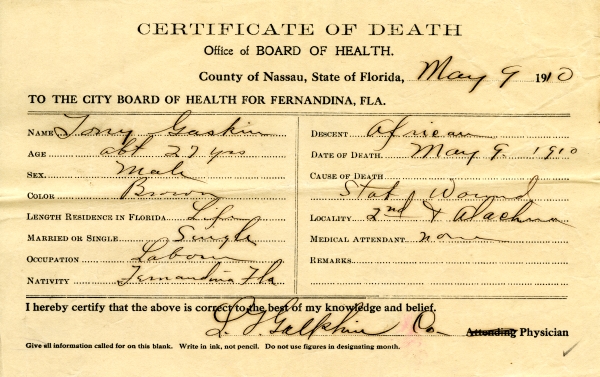 CERTIFICATE OF DEATH
Office of BOARD OF HEALTH.
County of Nassau, State of Florida, May 9 1910
TO THE CITY BOARD OF HEALTH FOR FERNANDINA, FLA.
NAME Tony Gaskin
AGE abt 27 yrs
SEX. Male
COLOR Brown
LENGTH RESIDENCE IN FLORIDA Life
MARRIED OR SINGLE Single
OCCUPATION Laborer
NATIVITY Fernandina Fla
DESCENT African
DATE OF DEATH. May 9. 1910
CAUSE OF DEATH
Stab Wound
LOCALITY 2nd & Alachua
MEDICAL ATTENDANT none
REMARKS
I hereby certify that the above is correct to the best of my knowledge and belief.
L. G. Galphin Co. Attending Physician
Give all information called for on this blank. Write in ink, not pencil. Do not use figures in designating month.